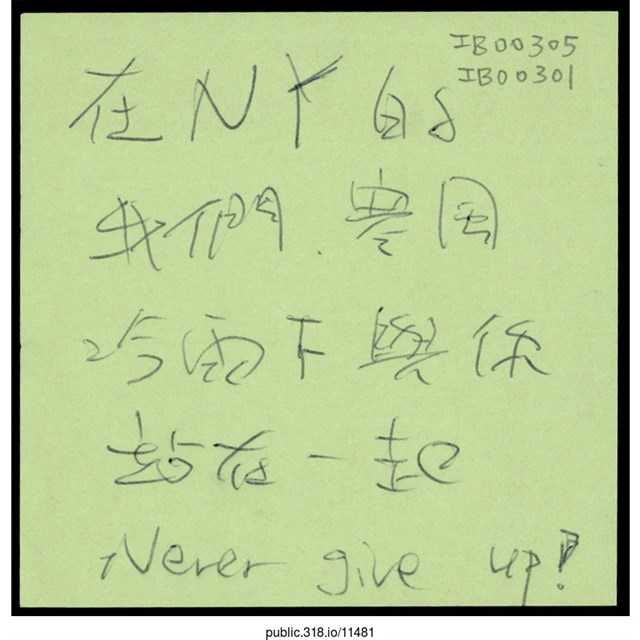 IB00305
IB00301
在NY的
我們.寒風
冷雨下與你
站在一起
Never give up!
public.318.io/11481